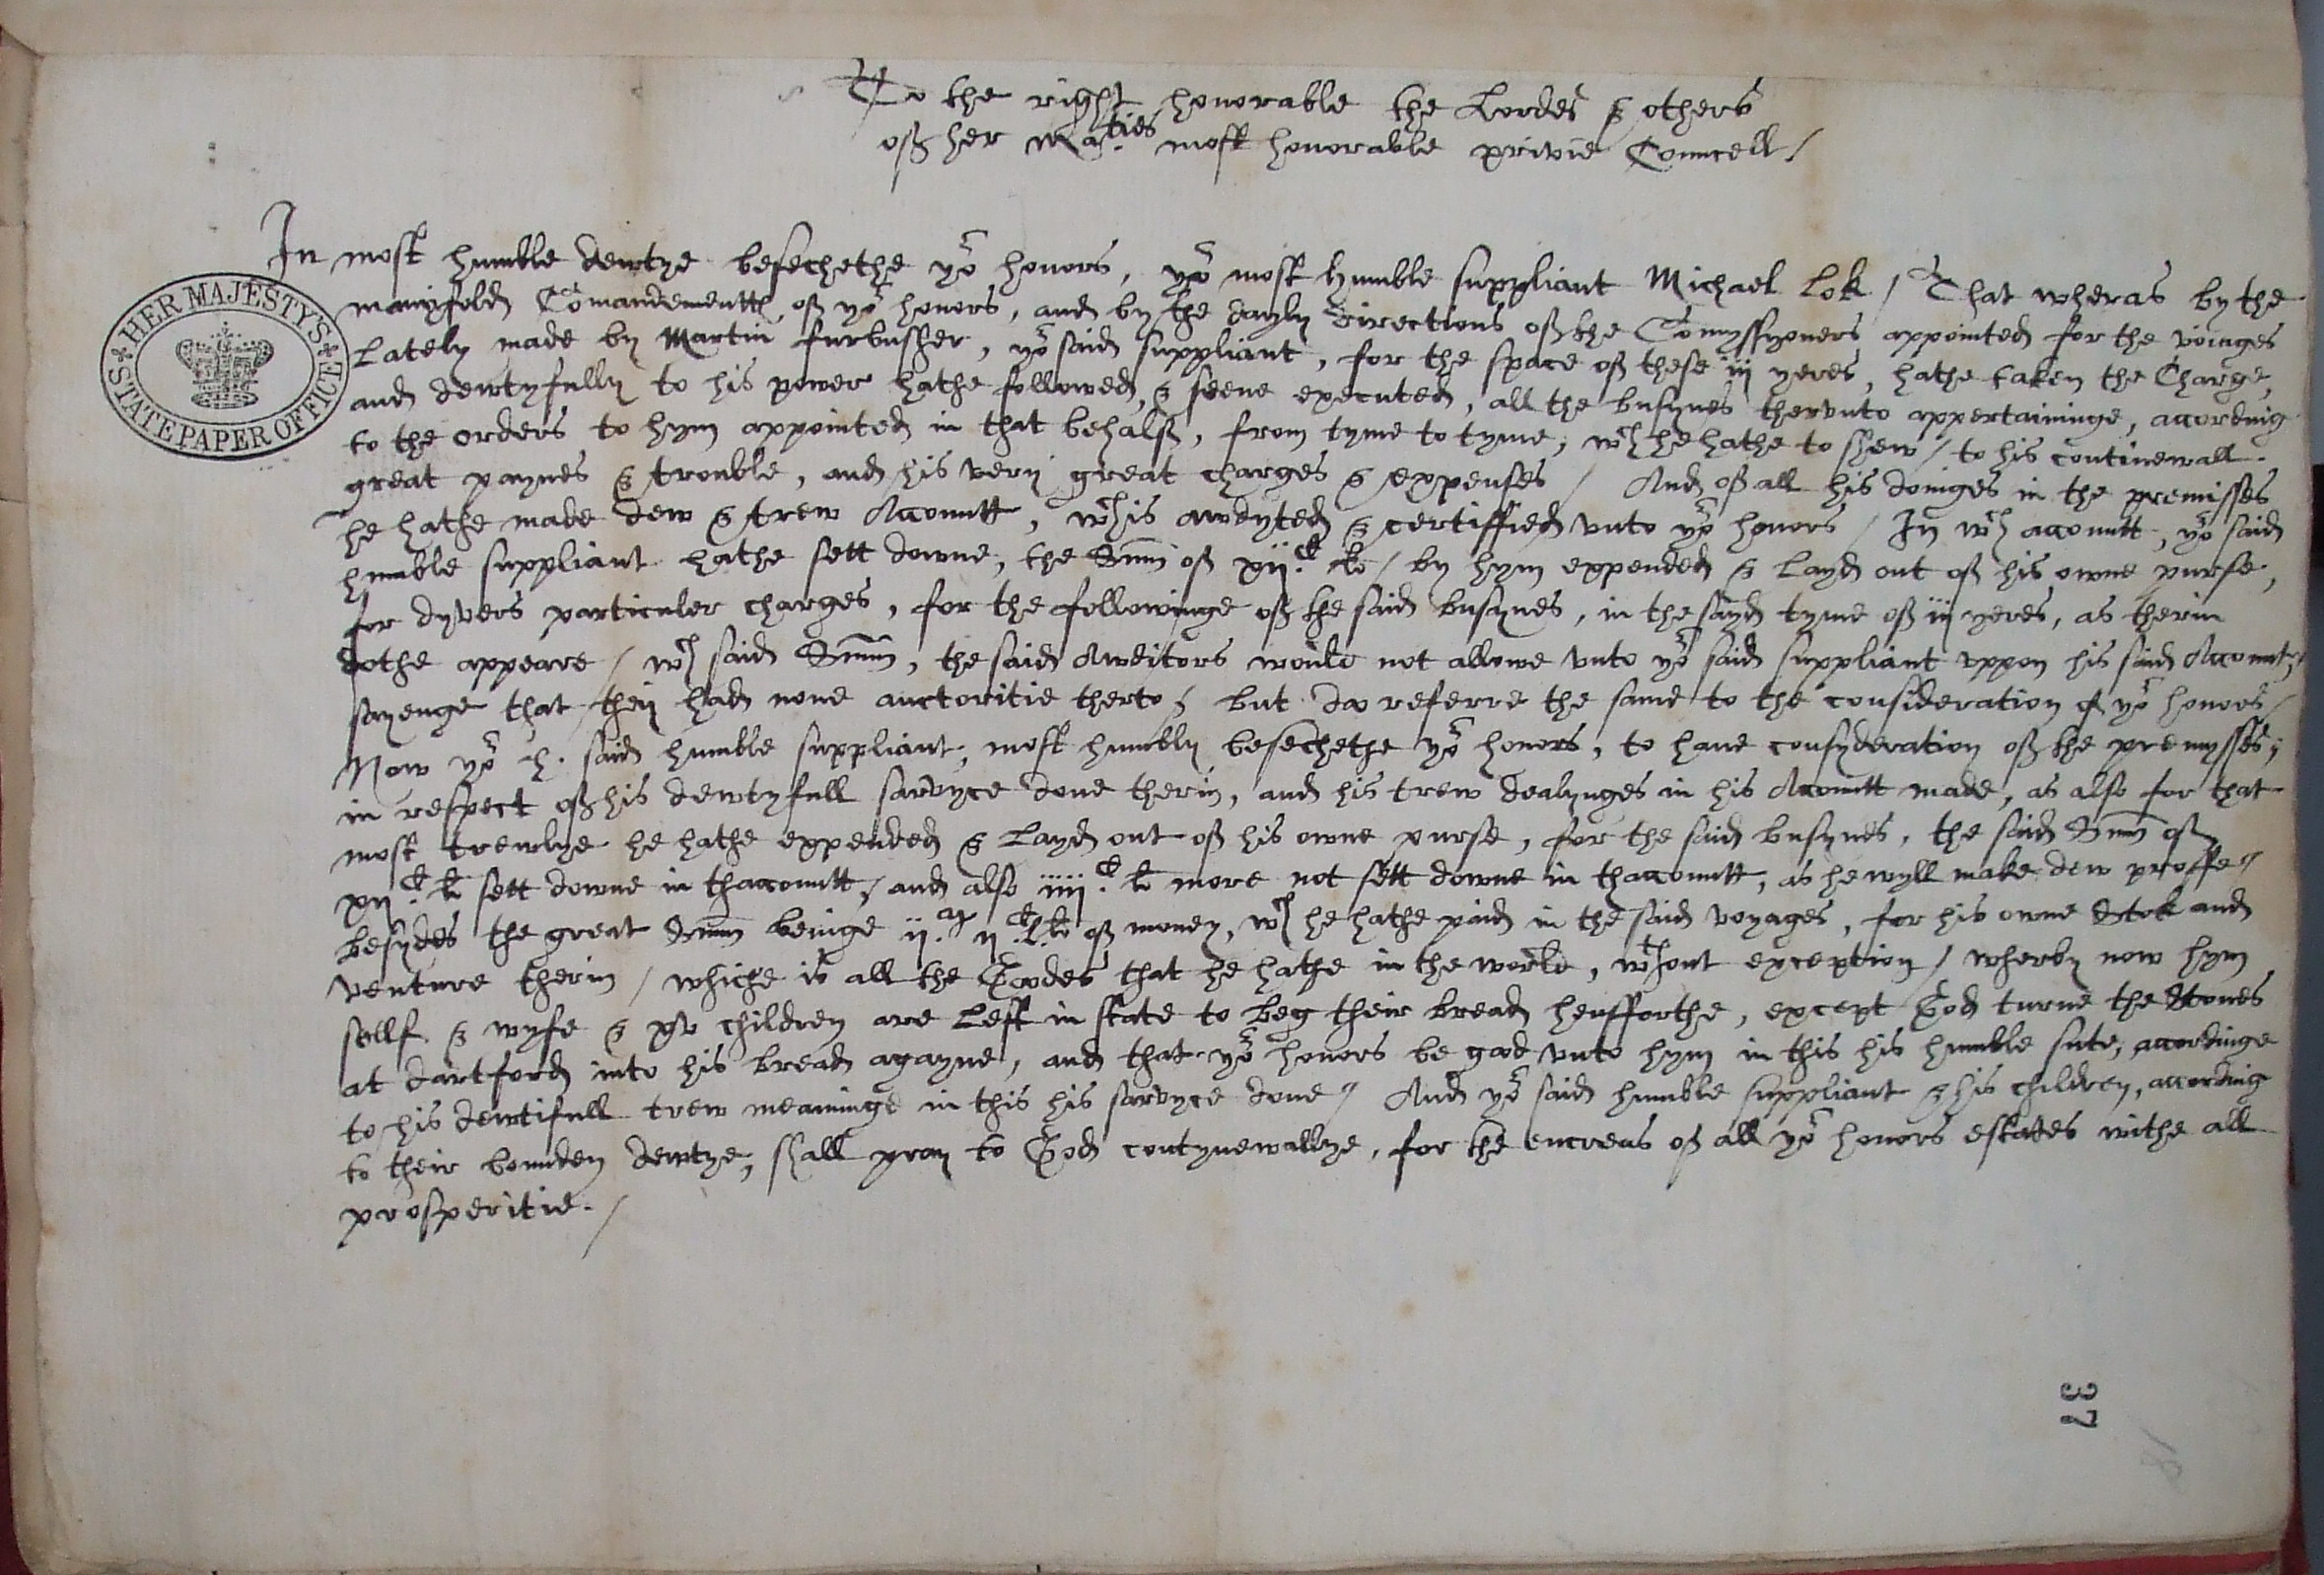 To the right honorable the Lordes & others
of her Ma.ties most honorable privie Councell /
In most humble dewtye besechethe yor honors, yor most humble suppliant Michael Lok / That wheras by the
manyfold Comandementts of yor honors, and by the dayly Directions of the Comyssyoners appointed for the voiages
Lately made by Martin furbusher, yor said suppliant, for the space of these iij yeres, hathe taken the Charge,
and dewtyfully to his power hathe followed, & seene executed, all the busynes thervnto appertaininge, according
to the orders to hym appointed in that behalf, from tyme to tyme, wch he hathe to shew / to his continewall
great paynes & trouble, and his very great charges & expenses / And of all his doinges in the premisses
he hathe made dew & trew Accountt, wch is awdyted & certiffied vnto yor honors / In wch accountt, yor said
humble suppliant hathe sett downe, the Summ of xij.C li / by hym expended & Layd out of his owne purse,
for dyvers particuler charges, for the followinge of the said busynes, in the sayd tyme of iij yeres, as therin
dothe appeare / wch said Summ, the said Awditors would not allowe vnto yor said suppliant vppon his said Accountt,
sayenge that they had none auctoritie therto, but do referre the same to the consideration of yor honors /
Now yor h. said humble suppliant, most humbly besechethe yor honors, to have consyderation of the premysses,
in respect of his dewtyfull sarvyce done therin, and his trew dealynges in his Accountt made, as also for that
most trewlye he hathe expended & Layd out of his owne purse, for the said busynes, the said Summ of
xij.C li sett downe in thaccountt, and also iiij.C li more not sett downe in thaccountt, as he wyll make dew proffe /
besydes the great Summ beinge ij.M ij.C L. li of money, wch he hathe paid in the said voyages, for his owne Stok and
venture therin / whiche is all the Goodes that he hathe in the world, wthout exception / wherby now hym
sellf & wyfe & xv children are Left in state to beg their bread hensforthe, except God turne the Stones
at dartford into his bread agayne, and that yor honors be good vnto hym in this his humble sute, accordinge
to his dewtifull trew meaninge in this his sarvyce done / And yor said humble suppliant & his children, according
to their bounden dewtye, shall pray to God contynewallye, for the encreas of all yor honors estates withe all
prosperitie. /
HER MAJESTY'S
STATE PAPER OFFICE
37